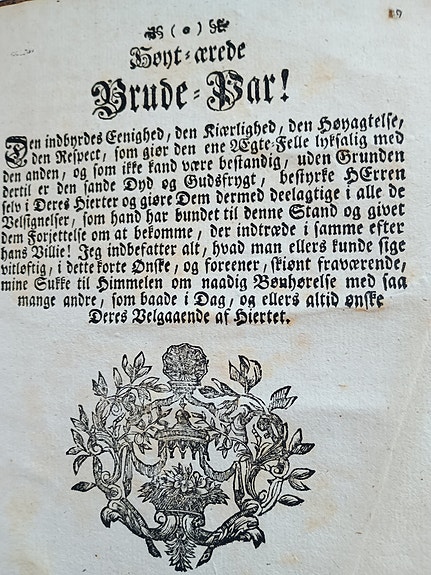 ( o )
Høyt-ærede
Brude-Par!
Den indbyrdes Eenighed, den Kiærlighed, den Høyagtelse,
den Respect, som giør den ene Ægte-Felle lyksalig med
den anden, og som ikke kand være bestandig, uden Grunden
dertil er den sande Dyd og Gudsfrygt, bestyrke HErren
selv i Deres Hierter og giøre Dem dermed deelagtige i alle de
Velsignelser, som hand har bundet til denne Stand og givet
dem Forjettelse om at bekomme, der indtræde i samme efter
hans Villie! Jeg indbefatter alt, hvad man ellers kunde sige
vitløftig, i dette korte Ønske, og foreener, skiønt fraværende,
mine Sukke til Himmelen om naadig Bønhørelse med saa
mange andre, som baade i Dag, og ellers altid ønske
Deres Velgaaende af Hiertet.